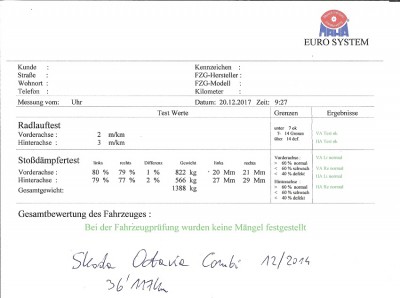 MAHA
EURO SYSTEM
Kunde : Kennzeichen :
Straße : FZG-Hersteller :
Wohnort : FZG-Modell :
Telefon : Kilometer :
Messung vom: Uhr Datum: 20.12.2017 Zeit: 9:27
Test Werte Grenzen Ergebnisse
Radlauftest
Vorderachse : 2 m/km
Hinterachse : 3 m/km
unter 7 ok
7- 14 Grenze
über 14 def.
VA Test ok
HA Test ok
Stoßdämpfertest links rechts Differenz Gewicht links rechts
Vorderachse : 80 % 79 % 1 % 822 kg 20 Mm 21 Mm
Hinterachse : 79 % 77 % 2 % 566 kg 27 Mm 29 Mm
Gesamtgewicht: 1388 kg
Vorderachse :
> 60 % normal
< 60 % schwach
< 40 % defekt
Hinterachse :
> 60 % normal
< 60 % schwach
< 40 % defekt
VA Li normal
VA Re normal
HA Li normal
HA Re normal
Gesamtbewertung des Fahrzeuges :
Bei der Fahrzeugprüfung wurden keine Mängel festgestellt
Skoda Octavia Combi 12/2014
36'117km